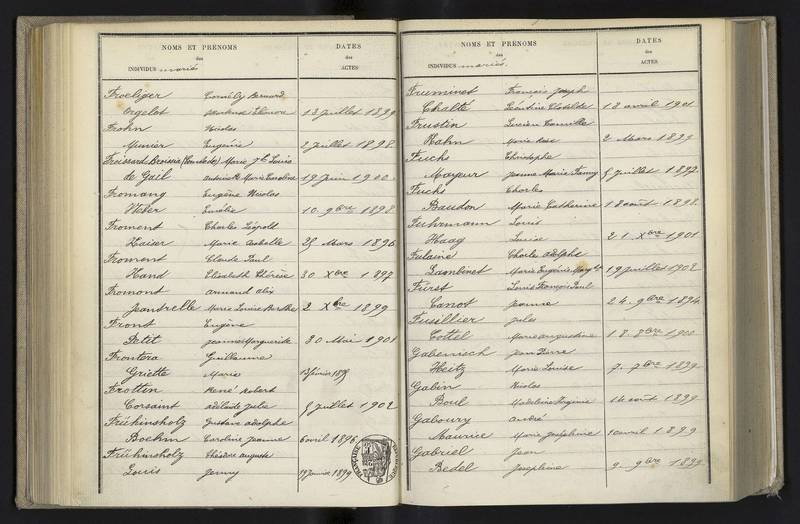 NOMS ET PRÉNOMS
des
INDIVIDUS mariés
DATES
des
ACTES
Froeliger
Orgelot 13 juillet 1899
Frohn Nicolas
Munier Eugénie 2 juillet 1898
Froissard Broissia Marie Louis
de Gail Antoinette Marie Caroline 19 juin 1900
Fromang Eugène Nicolas
Weber Emélie 10 9bre 1898
Fromont Charles Léopold
Kaiser Marie Isabelle 25 Mars 1896
Fromont Claude Paul
Hand Elisabeth Thérèse 30 Xbre 1897
Fromont Armand Alix
Jeandrelle Marie Louise Berthe 2 Xbre 1899
Front Eugène
Petit Jeanne Marguerite 30 Mai 1901
Frontera Guillaume
Griette Marie
Frottin René Robert
Corsaint Adélaïde Julie 5 juillet 1902
Frühinsholz Gustave Adolphe
Boehm Caroline Jeanne 6 avril 1896
Frühinsholz Théodore Auguste
Louis Jenny 19 janvier 1899
NOMS ET PRÉNOMS
des
INDIVIDUS mariés
DATES
des
ACTES
Fruminet François Joseph
Chalté Léontine Clotilde 18 avril 1901
Frustin Lucien Camille
Hahn Marie Rose 2 Mars 1899
Fuchs Christophe
Mayeur Jeanne Marie Fanny 5 juillet 1897
Fuchs Charles
Baudon Marie Catherine 18 août 1898
Fuhrmann Louis
Haag Louise 21 Xbre 1901
Fulaine Charles Adolphe
Lambinet Marie Eugénie 19 juillet 1902
Fürst Louis François Paul
Canot Jeanne 24 9bre 1894
Fusillier Jules
Cottel Marie Augustine 18 8bre 1900
Gabenisch Jean Pierre
Heitz Marie Louise 7 7bre 1899
Gabin Nicolas
Boul Madeleine 14 août 1899
Gaboury André
Maurice Marie Joséphine 10 avril 1899
Gabriel Jean
Bedel Joséphine 9 9bre 1899